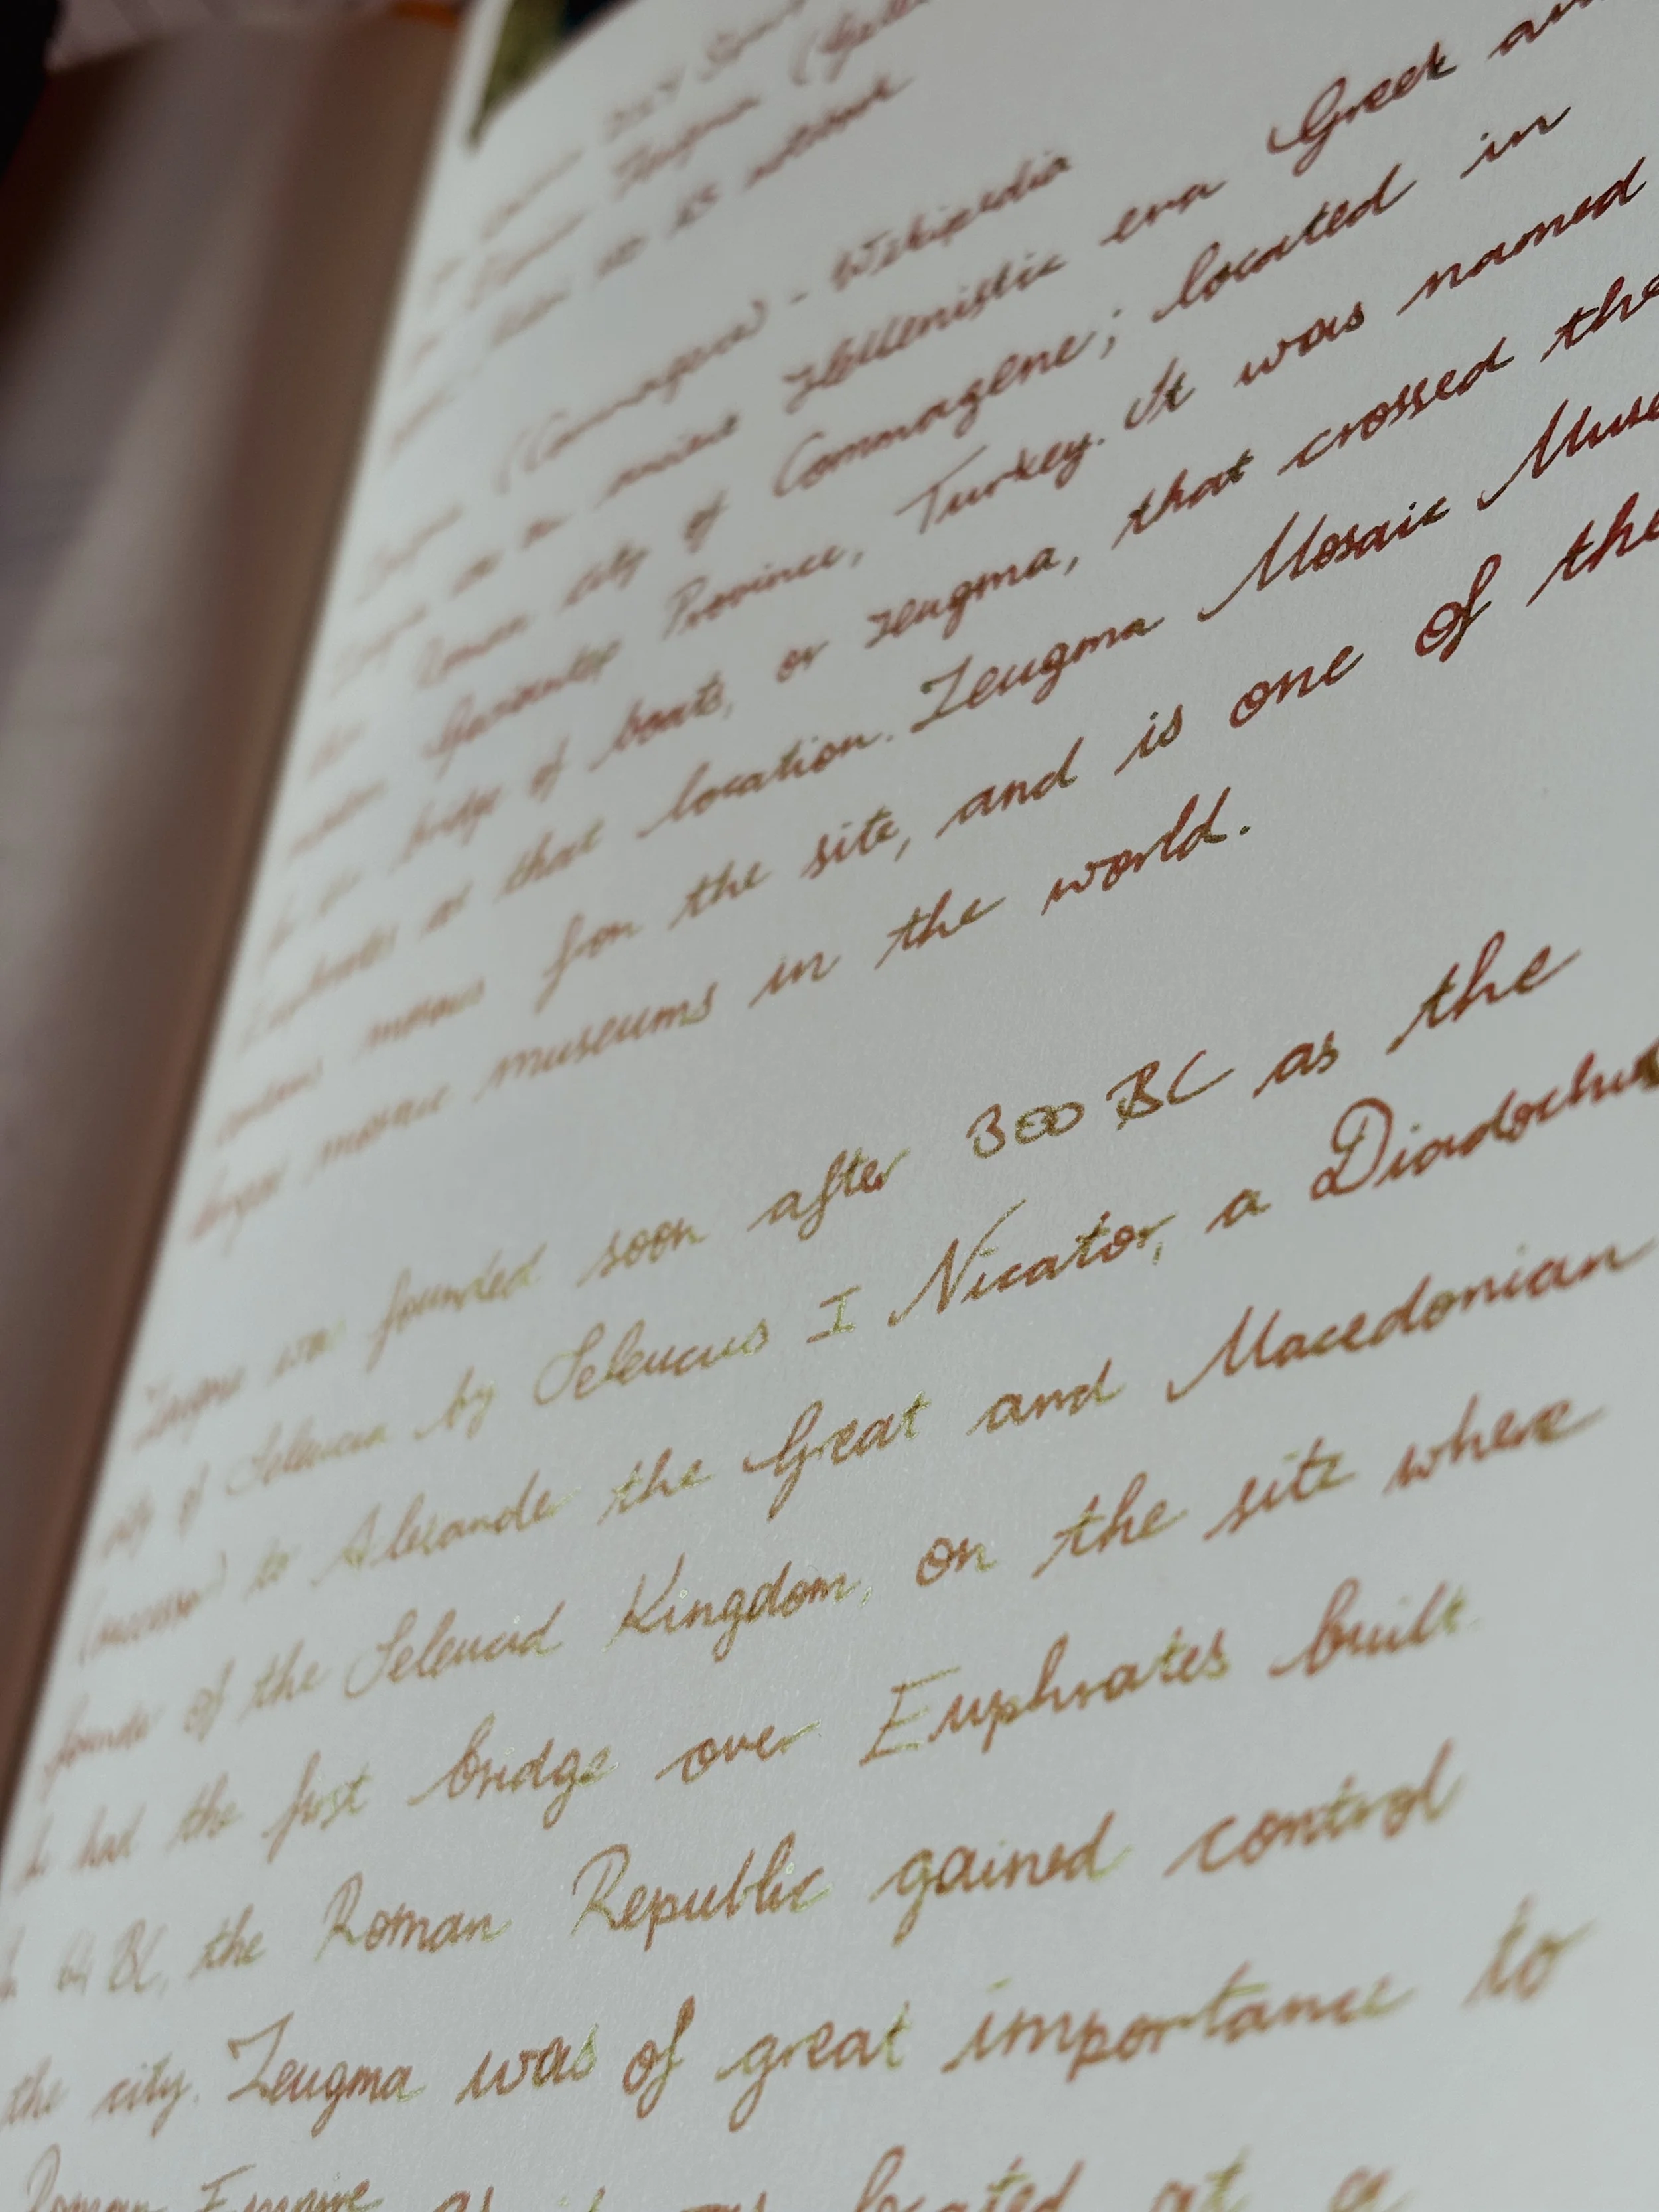 Zeugma
(Commagene) - Wikipedia
Zeugma is an ancient Hellenistic era Greek
Roman city of Commagene; located in
Gaziantep Province, Turkey. It was named
bridge of boats, or zeugma, that crossed the
Euphrates at that location. Zeugma Mosaic
contains mosaics from the site, and is one of the
largest mosaic museums in the world.
Zeugma was founded soon after 300 BC as the
city of Seleucia by Seleucus I Nicator, a Diadochus
(successor) to Alexander the Great and Macedonian
founder of the Seleucid Kingdom, on the site where
he had the first bridge over Euphrates built.
In 64 BC, the Roman Republic gained control
the city. Zeugma was of great importance to
Roman Empire as it was located at a